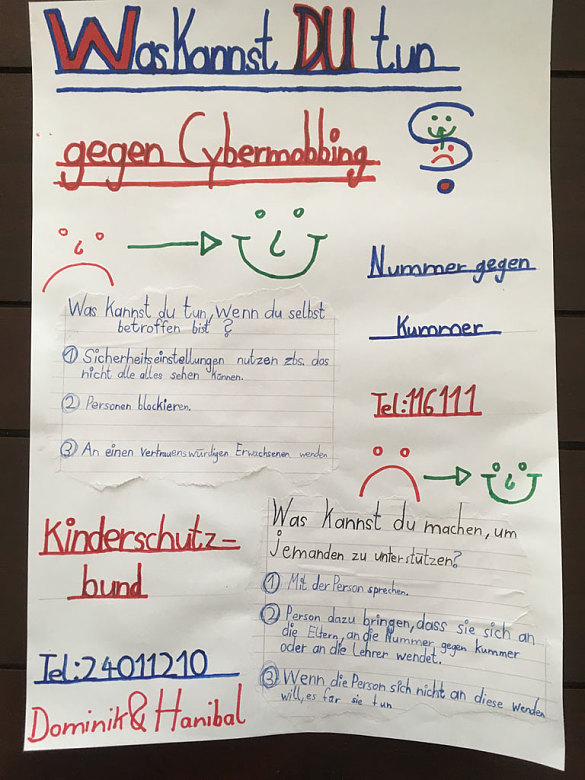 Was Kannst DU tun
gegen Cybermobbing
?
Nummer gegen
Kummer
Tel:116111
Was Kannst du tun, wenn du selbst
betroffen bist?
① Sicherheitseinstellungen nutzen zbs. das
nicht alle alles sehen können.
② Personen blockieren.
③ An einen vertrauenswürdigen Erwachsenen wenden
Kinderschutz-
bund
Tel:24011210
Dominik & Hanibal
Was Kannst du machen, um
jemanden zu unterstützen?
① Mit der Person sprechen.
② Person dazu bringen, dass sie sich an
die Eltern, an die Nummer gegen kummer
oder an die Lehrer wendet.
③ Wenn die Person sich nicht an diese wenden
will, es für sie tun